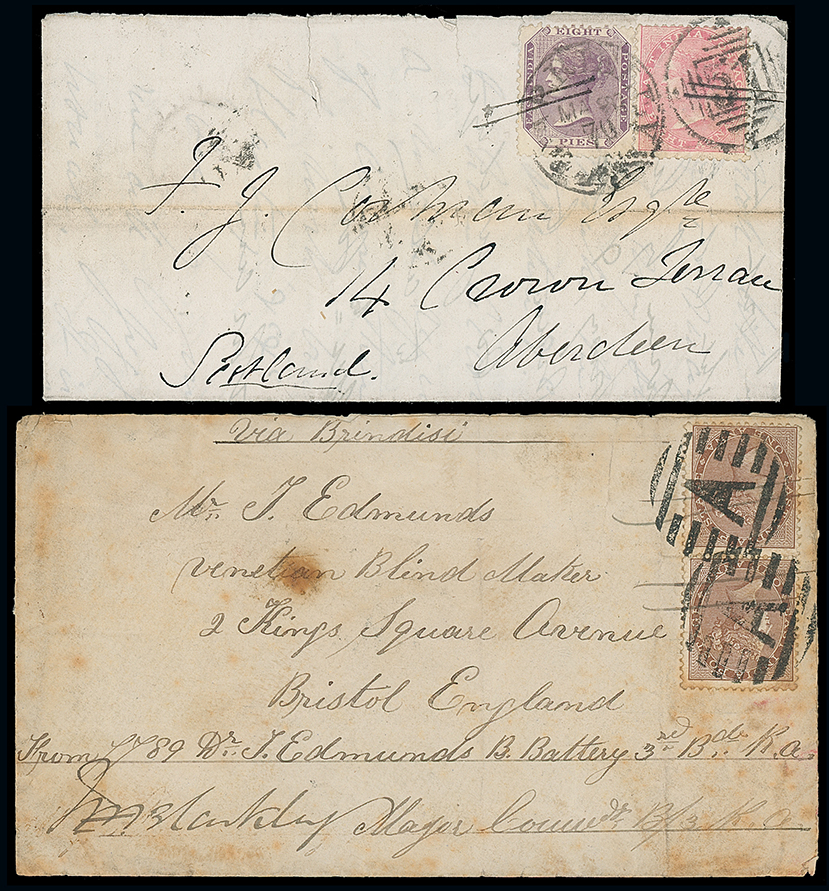 EIGHT
EAST INDIA POSTAGE
PIES
EAST INDIA
MA
70
F. J. Esqre
14 Crown Terrace
Aberdeen
Scotland.
Via Brindisi
Mr. T. Edmunds
venetian Blind Maker
2 Kings Square Avenue
Bristol England
From 789 Dr. T. Edmunds B. Battery 3rd Bde R.a.
Major Commdr B/3 R.a.
A
L